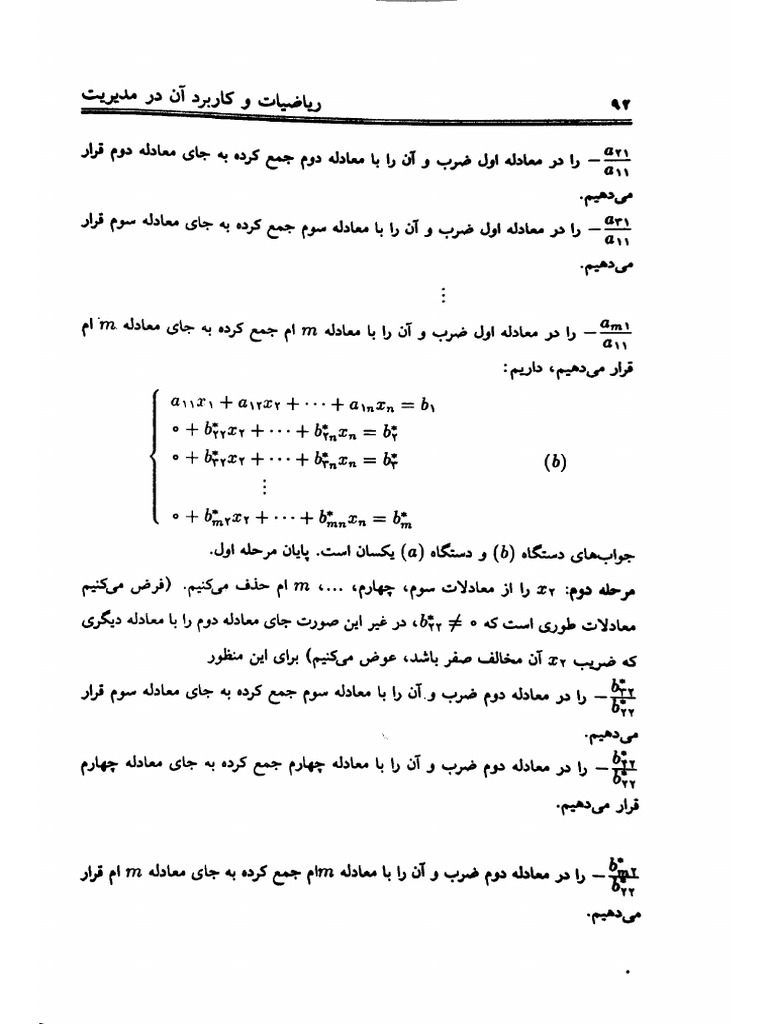 ۹۲ ریاضیات و کاربرد آن در مدیریت
−a۲۱/a۱۱ را در معادله اول ضرب و آن را با معادله دوم جمع کرده به جای معادله دوم قرار
می‌دهیم.
−a۳۱/a۱۱ را در معادله اول ضرب و آن را با معادله سوم جمع کرده به جای معادله سوم قرار
می‌دهیم.
⋮
−am۱/a۱۱ را در معادله اول ضرب و آن را با معادله m ام جمع کرده به جای معادله m ام
قرار می‌دهیم، داریم:
a۱۱x۱ + a۱۲x۲ + ··· + a۱nxn = b۱
۰ + b*۲۲x۲ + ··· + b*۲nxn = b*۲
۰ + b*۳۲x۲ + ··· + b*۳nxn = b*۳ (b)
⋮
۰ + b*m۲x۲ + ··· + b*mnxn = b*m
جواب‌های دستگاه (b) و دستگاه (a) یکسان است. پایان مرحله اول.
مرحله دوم: x۲ را از معادلات سوم، چهارم، ...، m ام حذف می‌کنیم. (فرض می‌کنیم
معادلات طوری است که b*۲۲ ≠ ۰، در غیر این صورت جای معادله دوم را با معادله دیگری
که ضریب x۲ آن مخالف صفر باشد، عوض می‌کنیم) برای این منظور
−b*۳۲/b*۲۲ را در معادله دوم ضرب و آن را با معادله سوم جمع کرده به جای معادله سوم قرار
می‌دهیم.
−b*۴۲/b*۲۲ را در معادله دوم ضرب و آن را با معادله چهارم جمع کرده به جای معادله چهارم
قرار می‌دهیم.
−b*m۲/b*۲۲ را در معادله دوم ضرب و آن را با معادله mام جمع کرده به جای معادله m ام قرار
می‌دهیم.